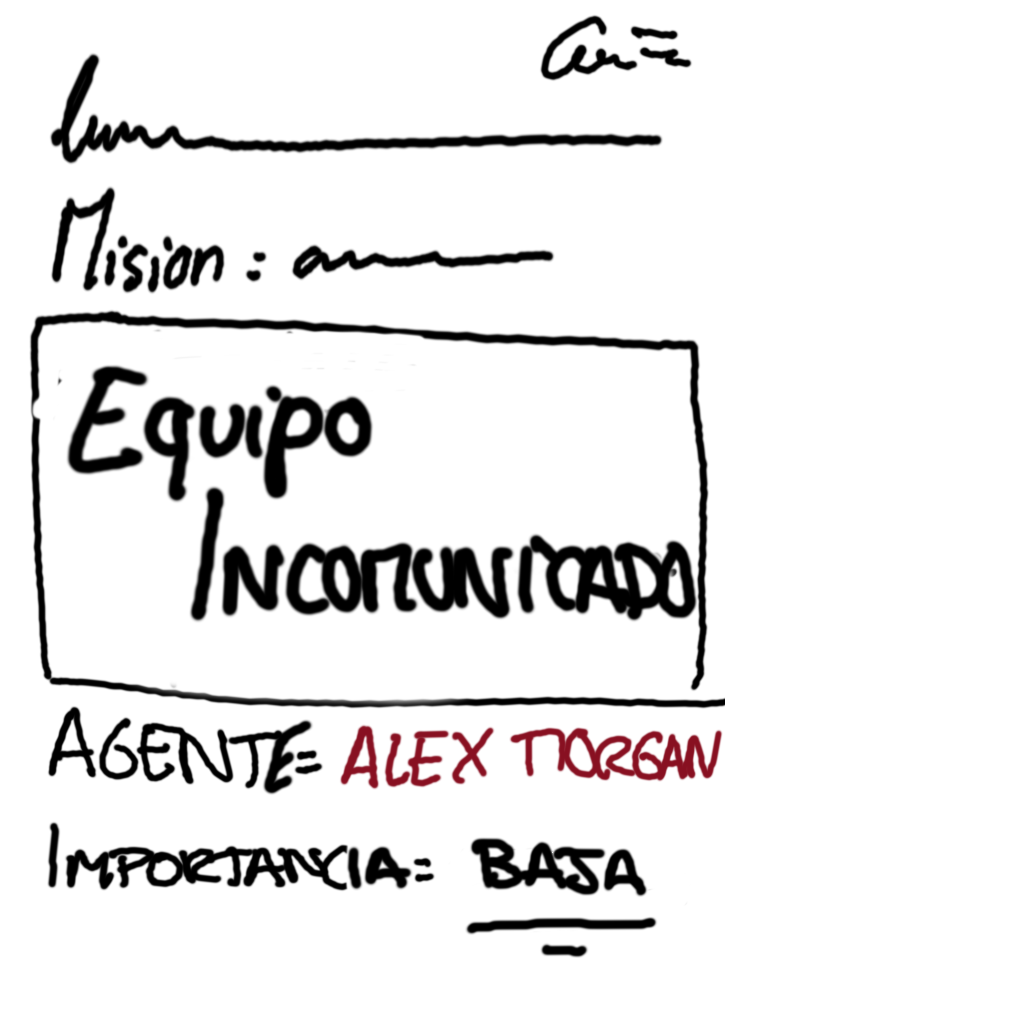 Mision :
Equipo
INCOMUNICADO
AGENTE= ALEX MORGAN
IMPORTANCIA= BAJA